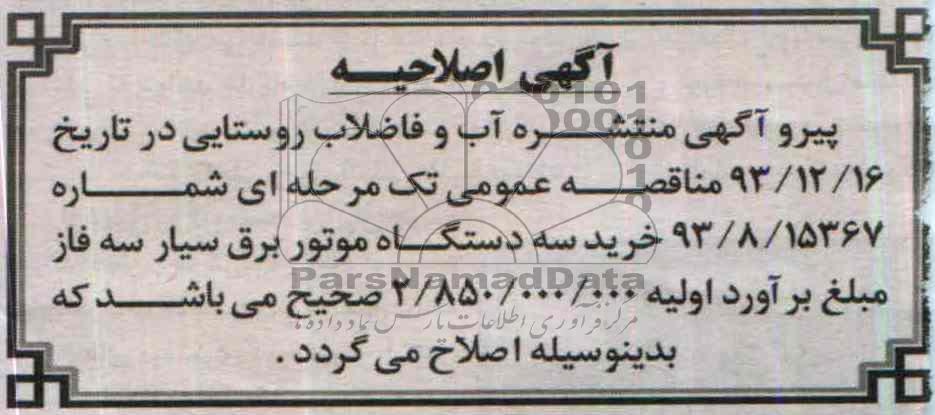 آگهی اصلاحیه
پیرو آگهی منتشره آب و فاضلاب روستایی در تاریخ
۹۳/۱۲/۱۶ مناقصه عمومی تک مرحله ای شماره
۹۳/۸/۱۵۳۶۷ خرید سه دستگاه موتور برق سیار سه فاز
مبلغ برآورد اولیه ۲/۸۵۰/۰۰۰/۰۰۰ صحیح می باشد که
بدینوسیله اصلاح می گردد.
ParsNamadData
مرکز فرآوری اطلاعات پارس نماد داده ها